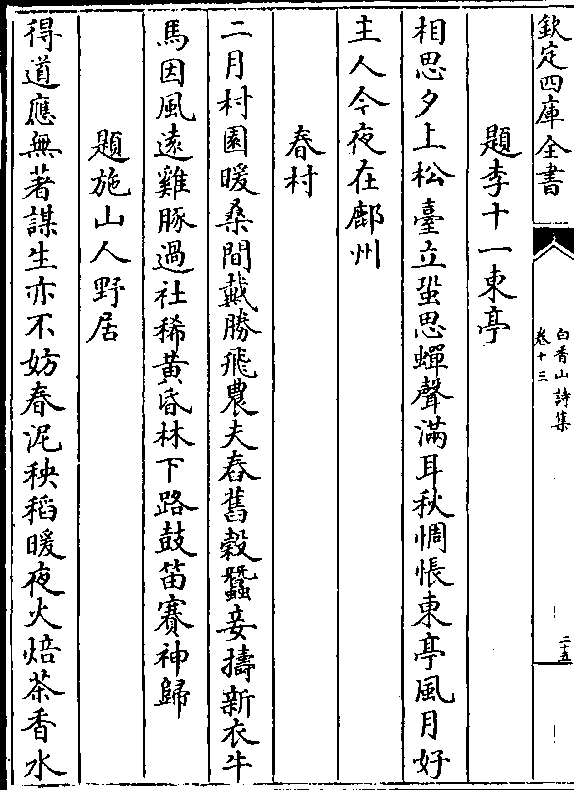 欽定四庫全書
白香山詩集
卷十三
二十五
題李十一東亭
相思夕上松臺立蛩思蟬聲滿耳秋惆悵東亭風月好
主人今夜在鄜州
春村
二月村園暖桑間戴勝飛農夫舂舊穀蠶妾擣新衣牛
馬因風遠雞豚過社稀黃昏林下路鼓笛賽神歸
題施山人野居
得道應無著謀生亦不妨春泥秧稻暖夜火焙茶香水